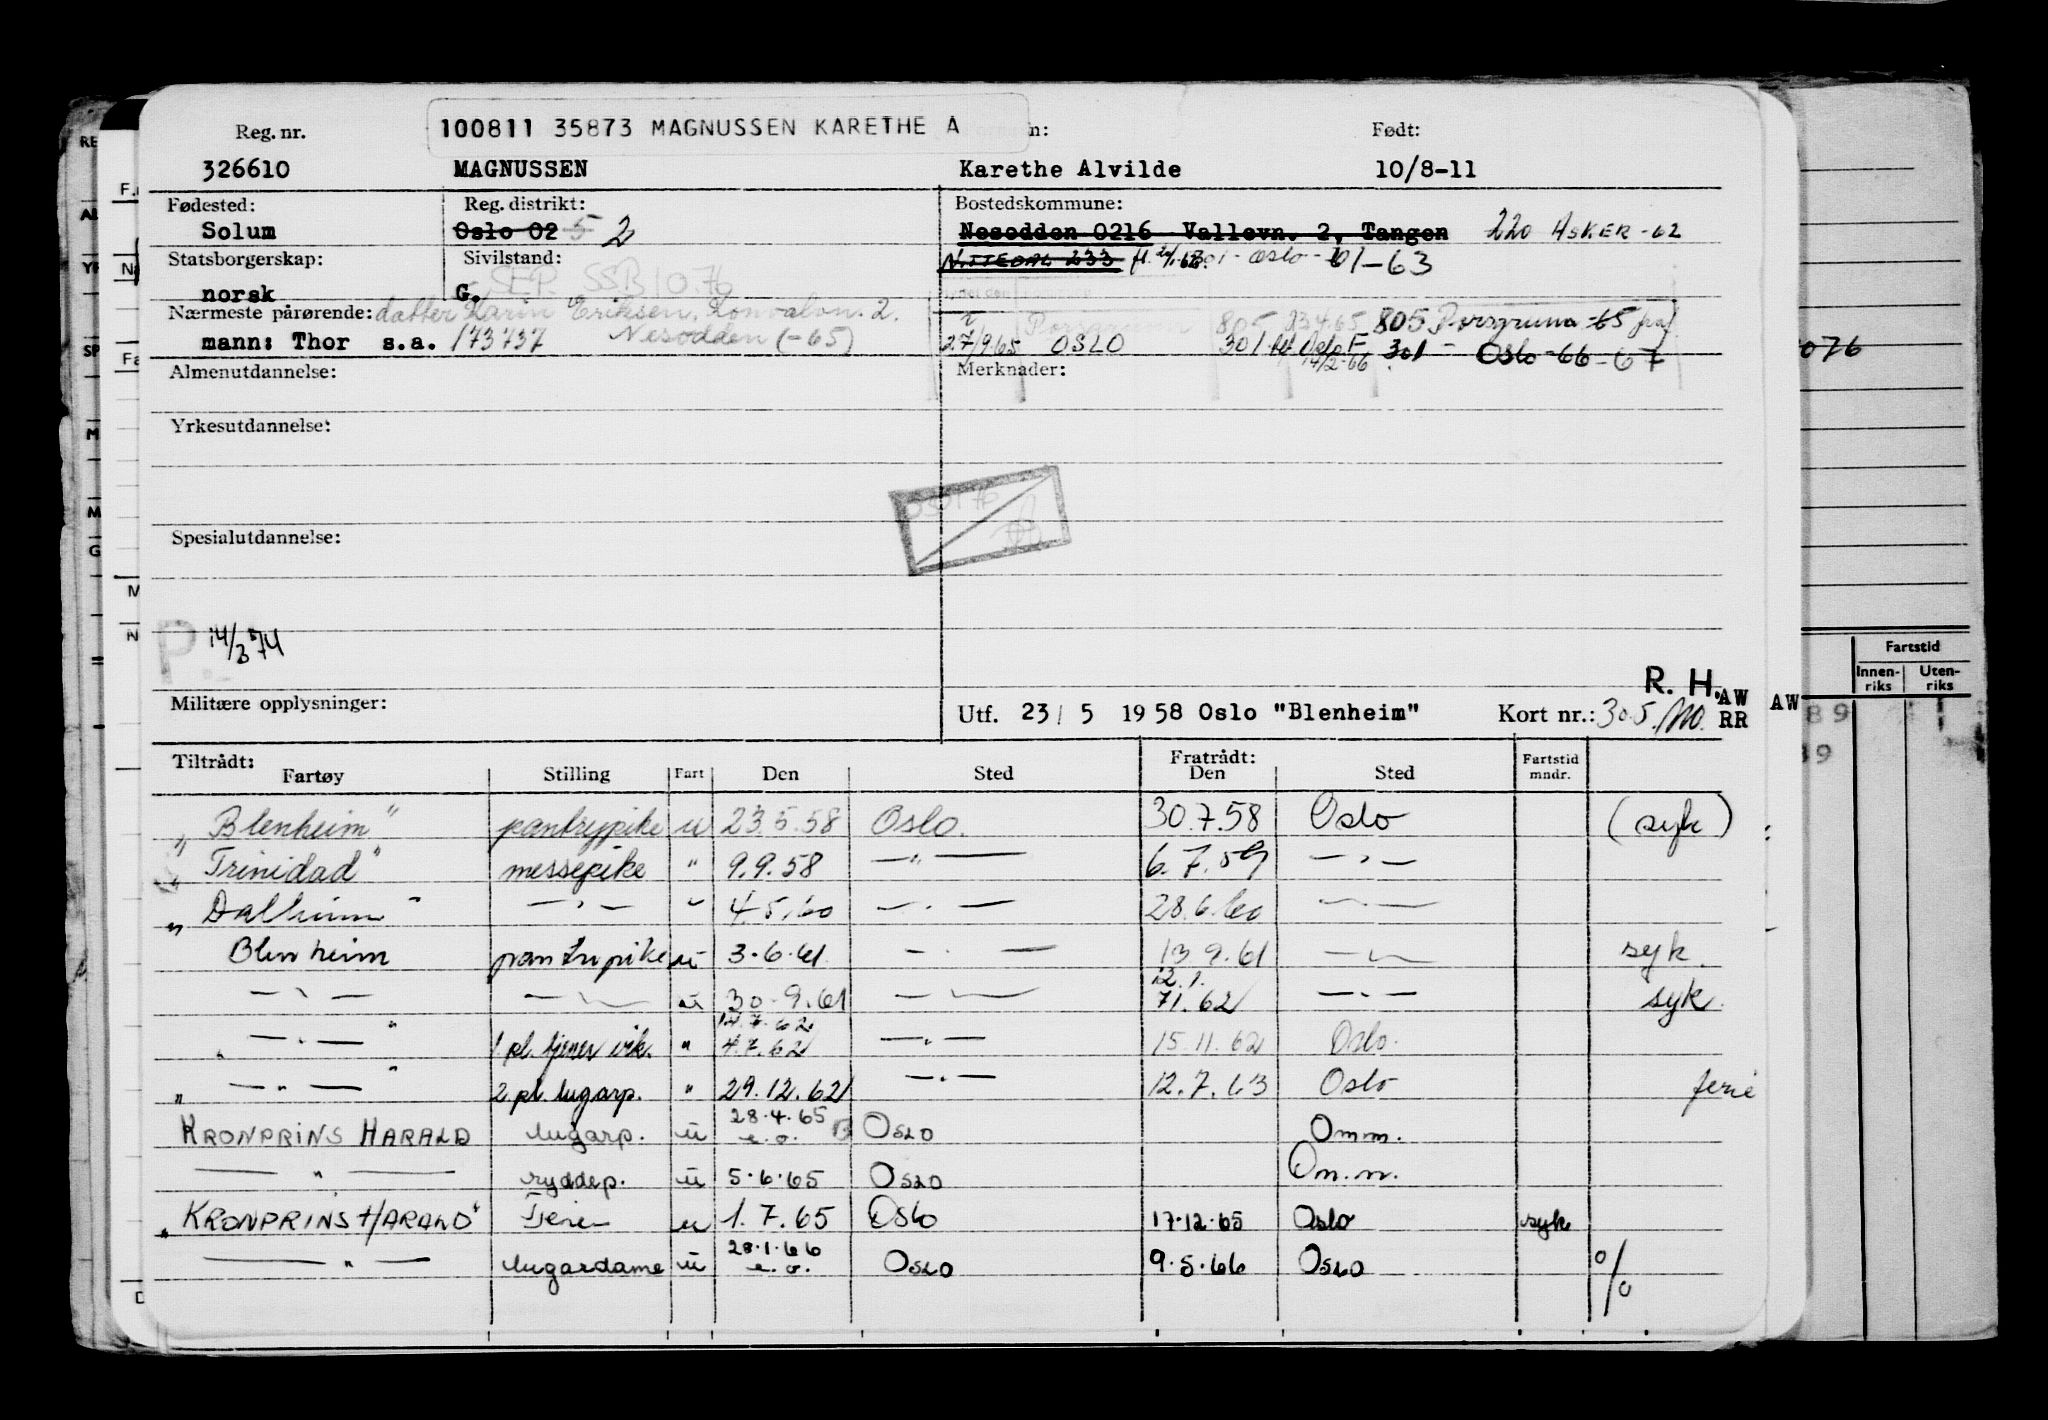 100811 35873 MAGNUSSEN KARETHE A
Reg. nr. Født:
326610 MAGNUSSEN Karethe Alvilde 10/8-11
Fødested: Reg. distrikt: Bostedskommune:
Solum Oslo 02 5 2 Nesodden 0216 Vallevn. 2, Tangen 220 ASKER -62
Statsborgerskap: Sivilstand: NITTEDAL 233 - Oslo - 61-63
norsk G. SEP. SSB 10.76
Nærmeste pårørende: datter Karin Eriksen, Konvalvn. 2. Porsgrunn 805 805 Porsgrunn -65
mann: Thor s.a. 173737 Nesodden (-65) 27/9 65 OSLO 301 Oslo F 14/2-66 301 - Oslo -66-67
Almenutdannelse: Merknader:
Yrkesutdannelse:
Spesialutdannelse:
P. 14/3 74
R. H. AW AW
Militære opplysninger: Utf. 23/ 5 1958 Oslo "Blenheim" Kort nr.: 305 RR
Tiltrådt: Fratrådt:
Fartøy Stilling Fart Den Sted Den Sted Fartstid mndr.
"Blenheim" pantrypike u 23.5.58 Oslo. 30.7.58 Oslo (syk)
"Trinidad" messepike " 9.9.58 — " — 6.7.59 — " —
"Dalheim" — " — " 4.5.60 — " — 28.6.60 — " —
Blenheim pantripike u 3.6.61 — " — 13.9.61 — " — syk.
— " — — " — u 30.9.61 — " — 12.1. 71.62 — " — syk.
14.7.62
" — " — " 1 pl. tjener vik. " 4.7.62 — " — 15.11.62 Oslo.
" — " — " 2 pl. lugarp. " 29.12.62 — " — 12.7.63 Oslo ferie
KRONPRINS HARALD lugarp. u 28.4.65 e.o. B OSLO Omm.
— " — ryddep. u 5.6.65 OSLO Om.m.
"KRONPRINS HARALD" Tjener u 1.7.65 Oslo 17.12.65 Oslo syk
— " — lugardame u 28.1.66 e.o. OSLO 9.5.66 OSLO %
076
Fartstid
Innen-riks Uten-riks
89
39